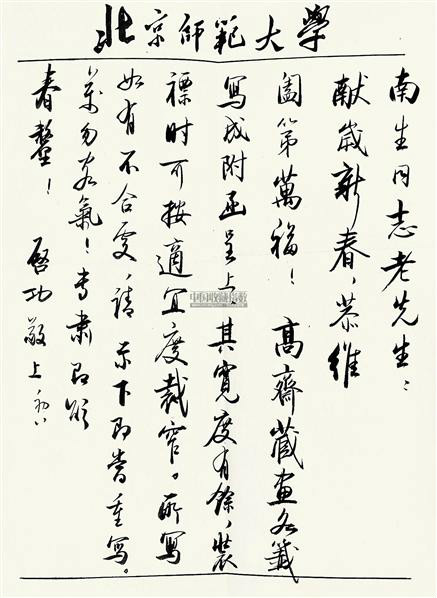 北京師範大學
南生同志老先生：
獻歲新春，恭維
闔第萬福！高齋藏畫各籤
寫成附函呈上，其寬度有餘，裝
裱時可按適宜度裁窄。所寫
如有不合處，請示下即當重寫。
萬勿客氣！專肅即頌
春釐！
啓功敬上 初八
中国收藏指数